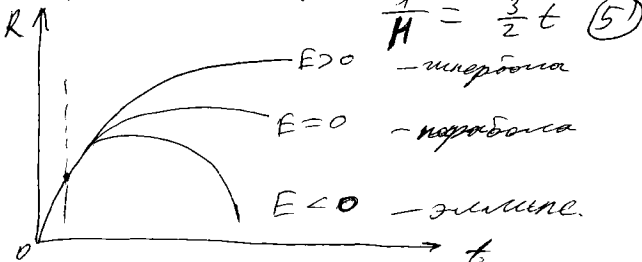 1/H = 3/2 t (5)
R
E>0 – гипербола
E=0 – парабола
E<0 – эллипс.
0
t